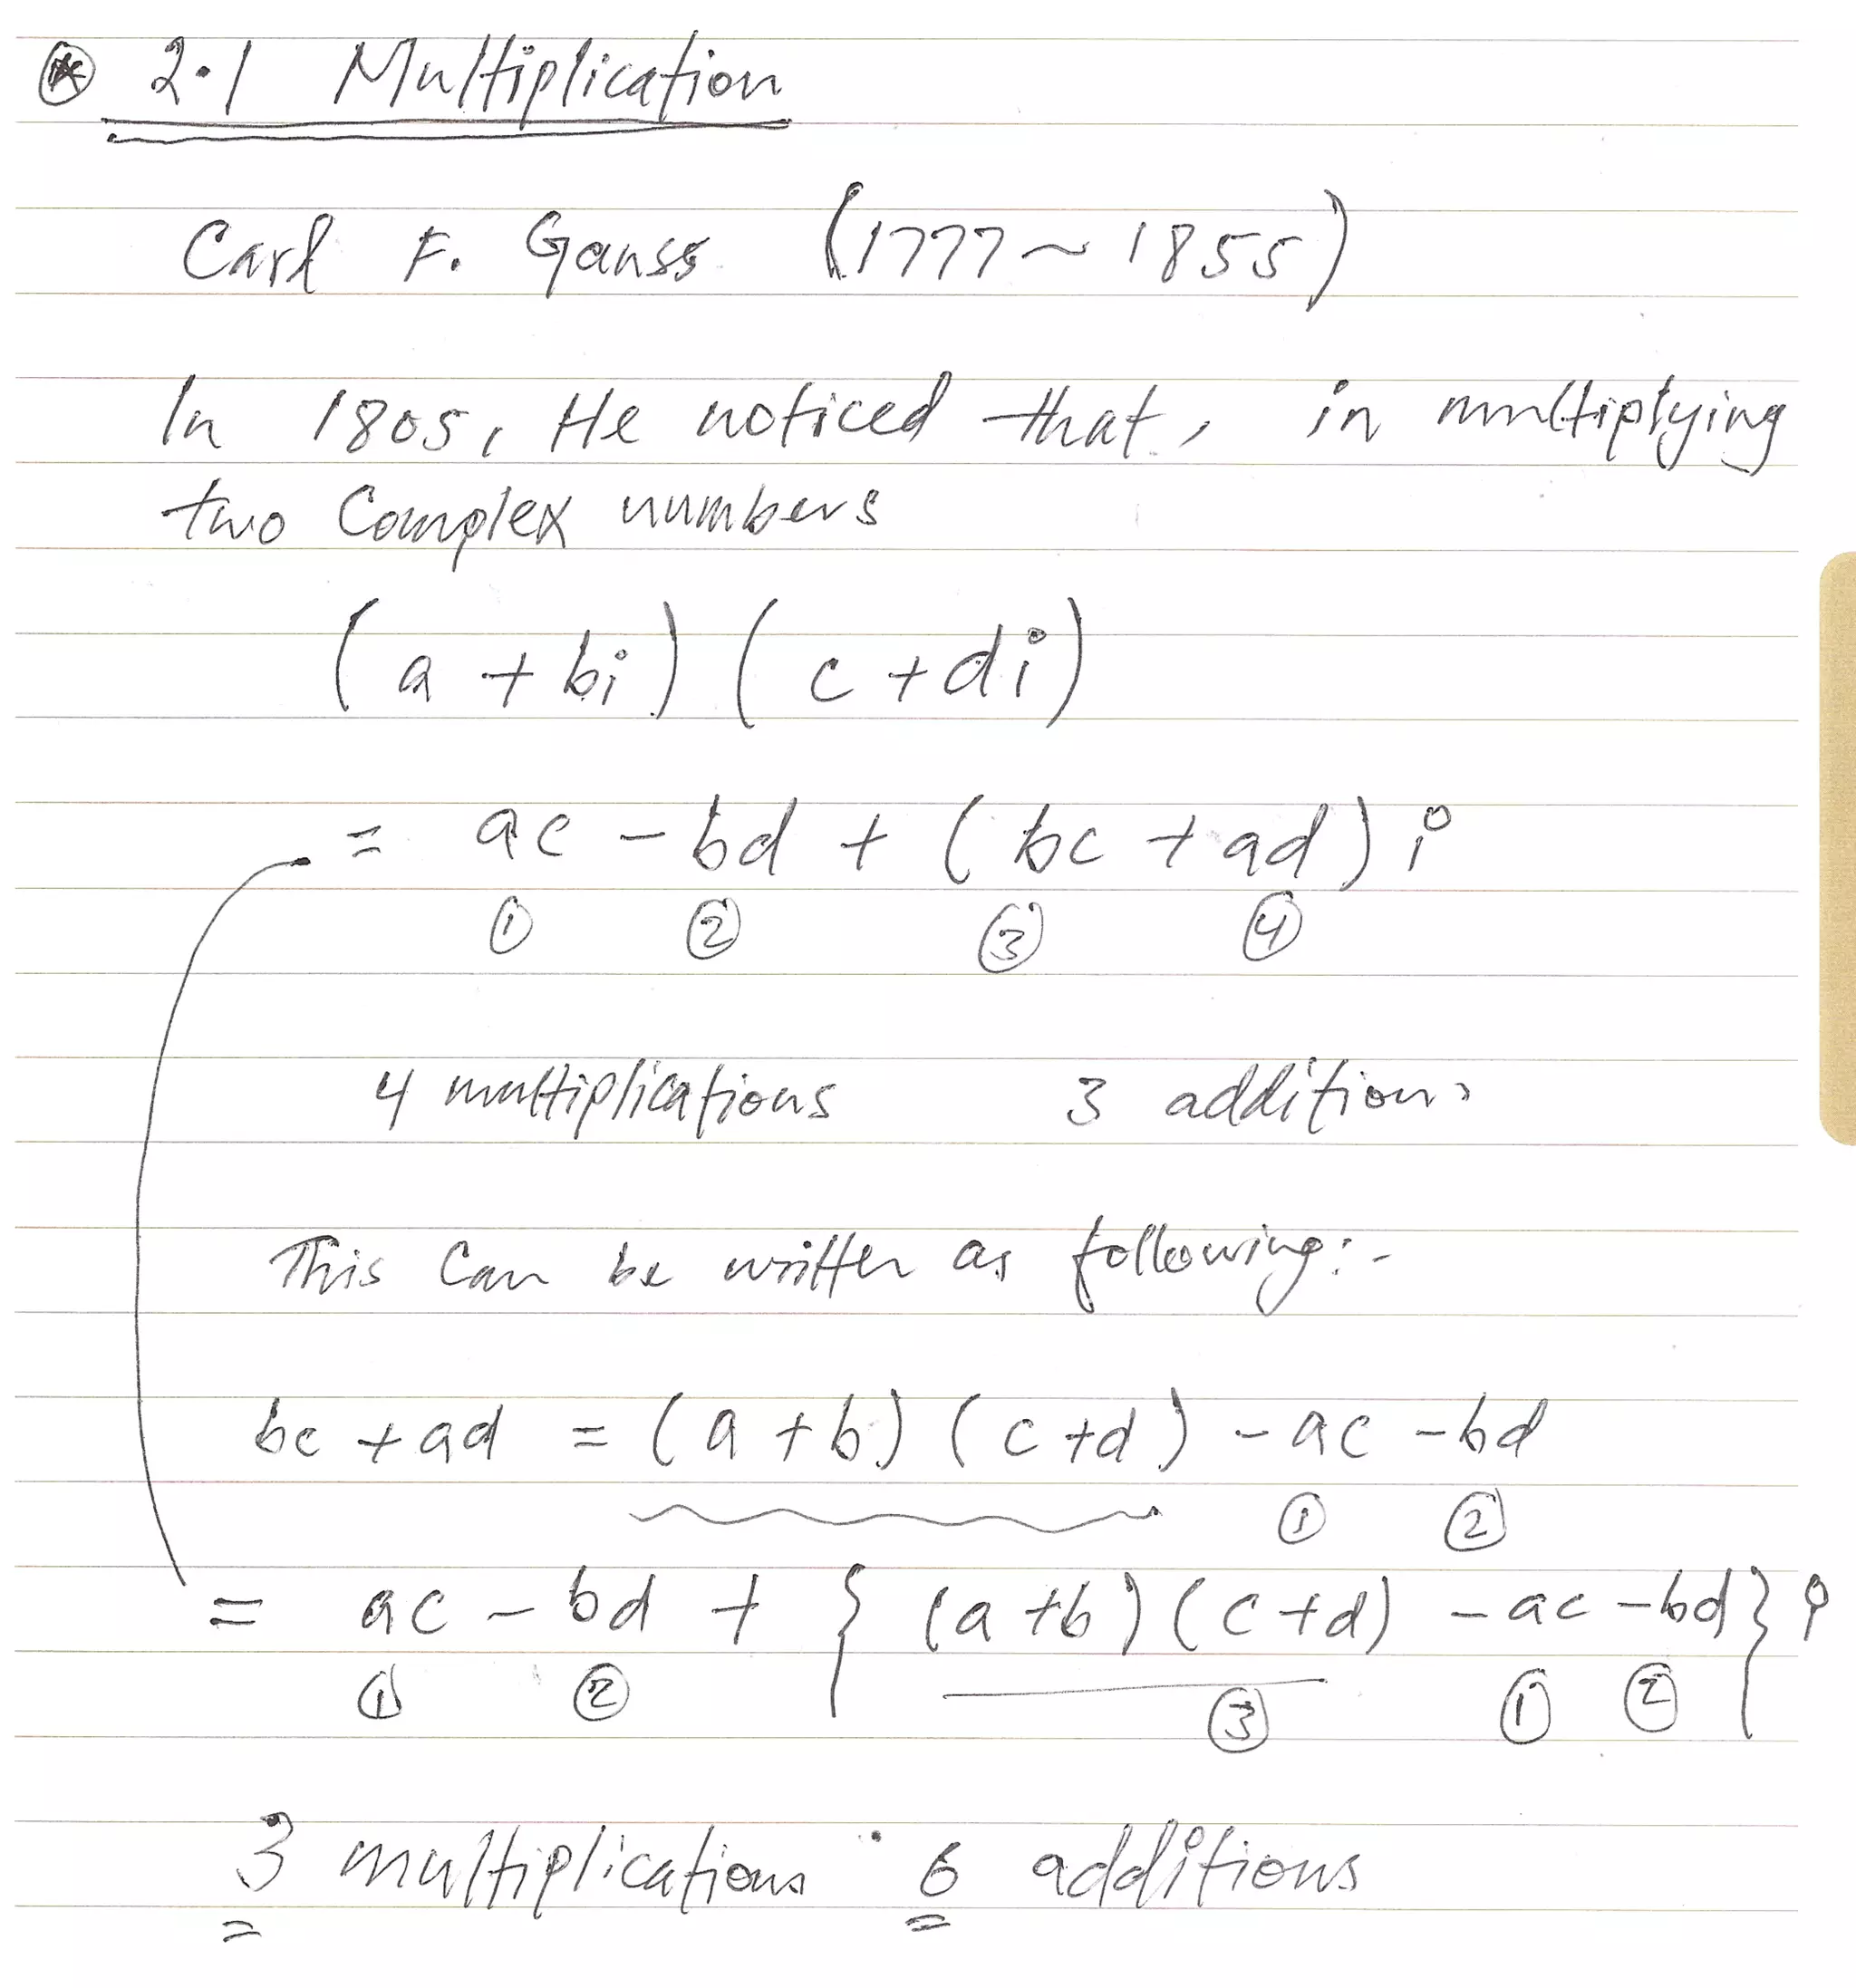 ⊛ 2.1 Multiplication
Carl F. Gauss (1777 ~ 1855)
In 1805, He noticed that, in multiplying
two Complex numbers
(a + bi) (c + di)
= ac - bd + (bc + ad) i
① ② ③ ④
4 multiplications 3 additions
This Can be written as following:-
bc + ad = (a + b) (c + d) - ac - bd
① ②
= ac - bd + { (a + b) (c + d) - ac - bd } i
① ② ③ ① ②
3 multiplications 6 additions